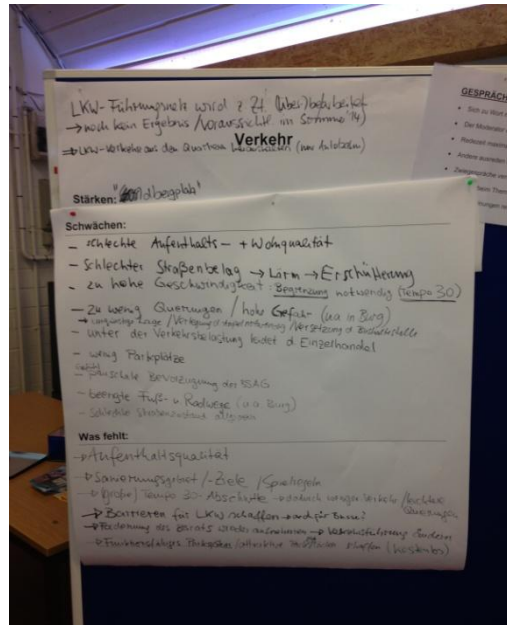 LKW-Führungsnetz wird z. Zt. (über)bearbeitet
→ noch kein Ergebnis / voraussichtl. im Sommer '14)
Verkehr
⇒ LKW-Verkehr aus den Quartieren heraushalten (nur Autobahn)
Stärken:
GESPRÄCH
• Sich zu Wort
• Der Moderator
• Redezeit maxim
• Andere ausreden
Schwächen:
- schlechte Aufenthalts- + Wohnqualität
- schlechter Straßenbelag → Lärm → Erschütterung
- zu hohe Geschwindigkeit: Begrenzung notwendig (Tempo 30)
- zu wenig Querungen / hohe Gefahr (u.a. in Burg)
- unter der Verkehrsbelastung leidet d. Einzelhandel
- wenig Parkplätze
- pauschale Bevorzugung der BSAG
- beengte Fuß- u. Radwege (u.a. Burg)
- schlechter Straßenzustand allgemein
Was fehlt:
→ Aufenthaltsqualität
→ Sanierungsgebiet / -Ziele / Spielregeln
→ (große) Tempo 30-Abschnitte → dadurch weniger Verkehr / leichtere Querungen
→ Barrieren für LKW schaffen → auch für Busse?
→ Forderung des Beirats wieder aufnehmen → Verkehrsführung ändern
schaffen (kostenlos)